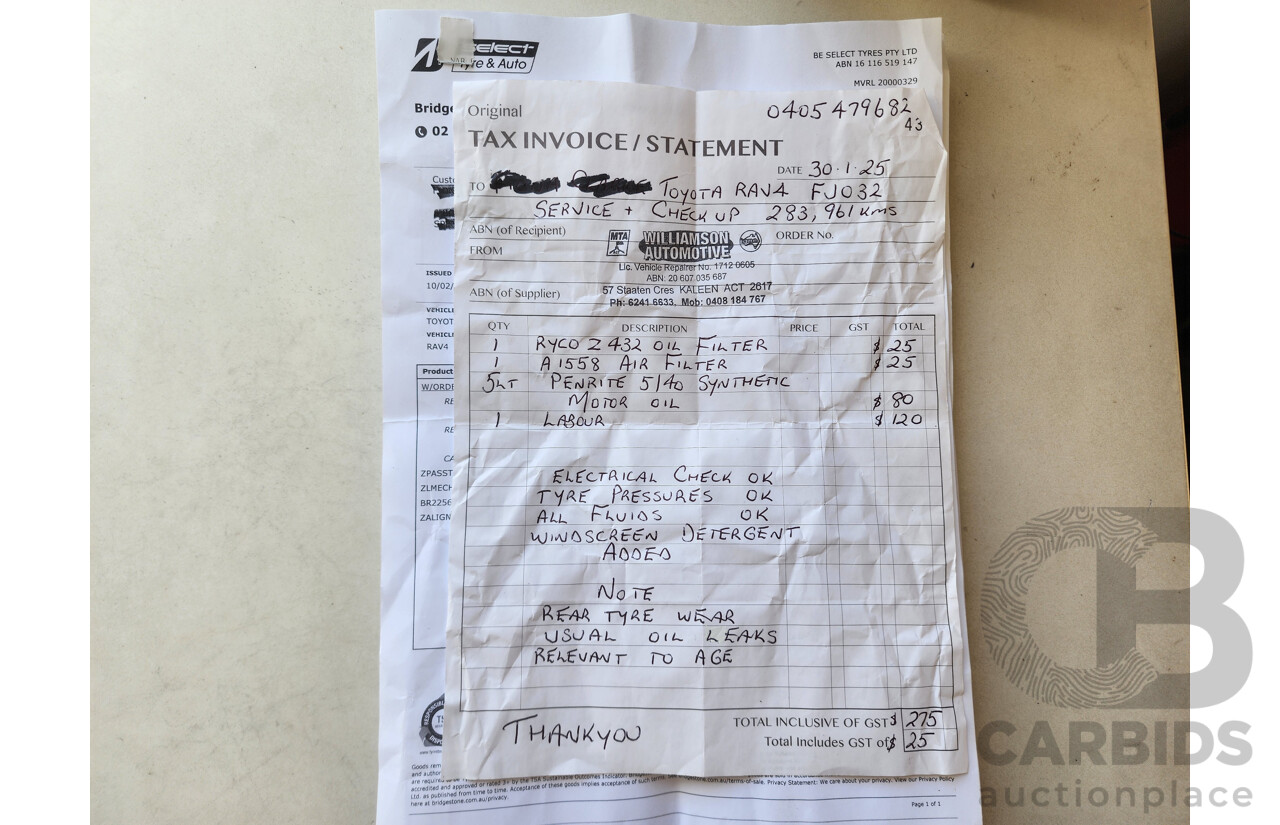 select
Tyre & Auto
BE SELECT TYRES PTY LTD
ABN 16 116 519 147
MVRL 20000329
Bridge
02
Original
0405 479682
43
TAX INVOICE / STATEMENT
DATE 30.1.25
TO TOYOTA RAV4 FJ032
SERVICE + CHECK UP 283,961 KMS
ABN (of Recipient)
ORDER No.
FROM
MTA
WILLIAMSON
AUTOMOTIVE
Lic. Vehicle Repairer No. 1712 0605
ABN: 20 607 035 687
ABN (of Supplier)
57 Staaten Cres KALEEN ACT 2617
Ph: 6241 6633, Mob: 0408 184 767
QTY DESCRIPTION PRICE GST TOTAL
1 RYCO Z432 OIL FILTER $ 25
1 A1558 AIR FILTER $ 25
5LT PENRITE 5/40 SYNTHETIC
MOTOR OIL $ 80
1 LABOUR $ 120
ELECTRICAL CHECK OK
TYRE PRESSURES OK
ALL FLUIDS OK
WINDSCREEN DETERGENT
ADDED
NOTE
REAR TYRE WEAR
USUAL OIL LEAKS
RELEVANT TO AGE
THANKYOU
TOTAL INCLUSIVE OF GST $ 275
Total Includes GST of $ 25
Custo
ISSUED
10/02/
VEHICLE
TOYOT
VEHICL
RAV4
Product
W/ORDE
RE
RE
CA
ZPASST
ZLMECH
BR2256
ZALIGN
Goods rem
and author
are required to be
accredited and approved or rated 3+ by the TSA Sustainable Outcomes Indicator.
Ltd. as published from time to time. Acceptance of these goods implies acceptance of such terms.
here at bridgestone.com.au/privacy.
.com.au/terms-of-sale. Privacy Statement: We care about your privacy. View our Privacy Policy
Page 1 of 1
CB
CARBIDS
auctionplace